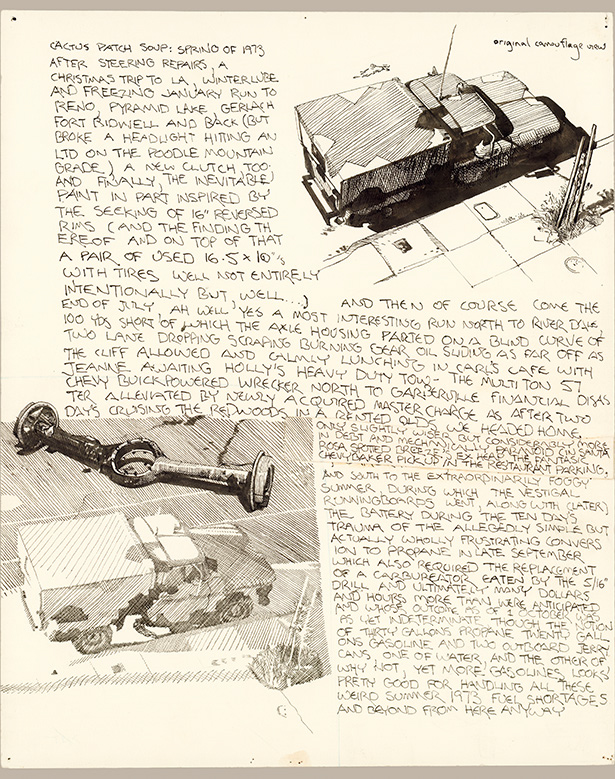 original camouflage view
CACTUS PATCH SOUP: SPRING OF 1973
AFTER STEERING REPAIRS, A
CHRISTMAS TRIP TO LA, WINTERLUBE
AND FREEZING JANUARY RUN TO
RENO, PYRAMID LAKE, GERLACH
FORT BIDWELL AND BACK (BUT
BROKE A HEADLIGHT HITTING AN
LTD ON THE POODLE MOUNTAIN
GRADE,) A NEW CLUTCH TOO.
AND FINALLY, THE INEVITABLE)
PAINT IN PART INSPIRED BY
THE SEEKING OF 16" REVERSED
RIMS (AND THE FINDING TH
EREOF AND ON TOP OF THAT
A PAIR OF USED 16.5 X 10"s
WITH TIRES WELL NOT ENTIRELY
INTENTIONALLY BUT, WELL...) AND THEN OF COURSE COME THE
END OF JULY, AH WELL, YES A MOST INTERESTING RUN NORTH TO RIVER DALE,
100 YDS SHORT OF WHICH THE AXLE HOUSING PARTED ON A BLIND CURVE OF
TWO LANE DROPPING SCRAPING BURNING GEAR OIL SLIDING AS FAR OFF AS
THE CLIFF ALLOWED AND CALMLY LUNCHING IN CARL'S CAFE WITH
JEANNE AWAITING HOLLY'S HEAVY DUTY TOW - THE MULTI TON 57
CHEVY BUICKPOWERED WRECKER NORTH TO GARBERVILLE FINANCIAL DISAS
TER ALLEVIATED BY NEWLY ACQUIRED MASTER CHARGE AS AFTER TWO
DAYS CRUISING THE REDWOODS IN A RENTED OLDS, WE HEADED HOME,
ONLY SLIGHTLY LOWER BUT CONSIDERABLY MORE
IN DEBT AND MECHANICALLY PARANOID ON SANTA
ROSA ROUTED BREEZER
CHEVY PICKUP IN THE RESTAURANT PARKING,
AND SOUTH TO THE EXTRAORDINARILY FOGGY
SUMMER DURING WHICH THE VESTIGAL
RUNNINGBOARDS WENT, ALONG WITH (LATER)
THE BATTERY DURING THE TEN DAYS
TRAUMA OF THE ALLEGEDLY SIMPLE BUT
ACTUALLY WHOLLY FRUSTRATING CONVERS
ION TO PROPANE IN LATE SEPTEMBER
WHICH ALSO REQUIRED THE REPLACEMENT
OF A CARBUREATOR EATEN BY THE 5/16
DRILL AND ULTIMATELY MANY DOLLARS
AND HOURS MORE THAN WERE ANTICIPATED
AND WHOSE OUTCOME
AS YET INDETERMINATE THOUGH THE UNION
OF THIRTY GALLONS PROPANE TWENTY GALL
ONS GASOLINE AND TWO OUTBOARD JERRY
CANS, ONE OF WATER, AND THE OTHER OF,
WHY NOT, YET MORE GASOLINE, LOOKS
PRETTY GOOD FOR HANDLING ALL THESE
WEIRD SUMMER, 1973 FUEL SHORTAGES
AND BEYOND FROM HERE ANYWAY